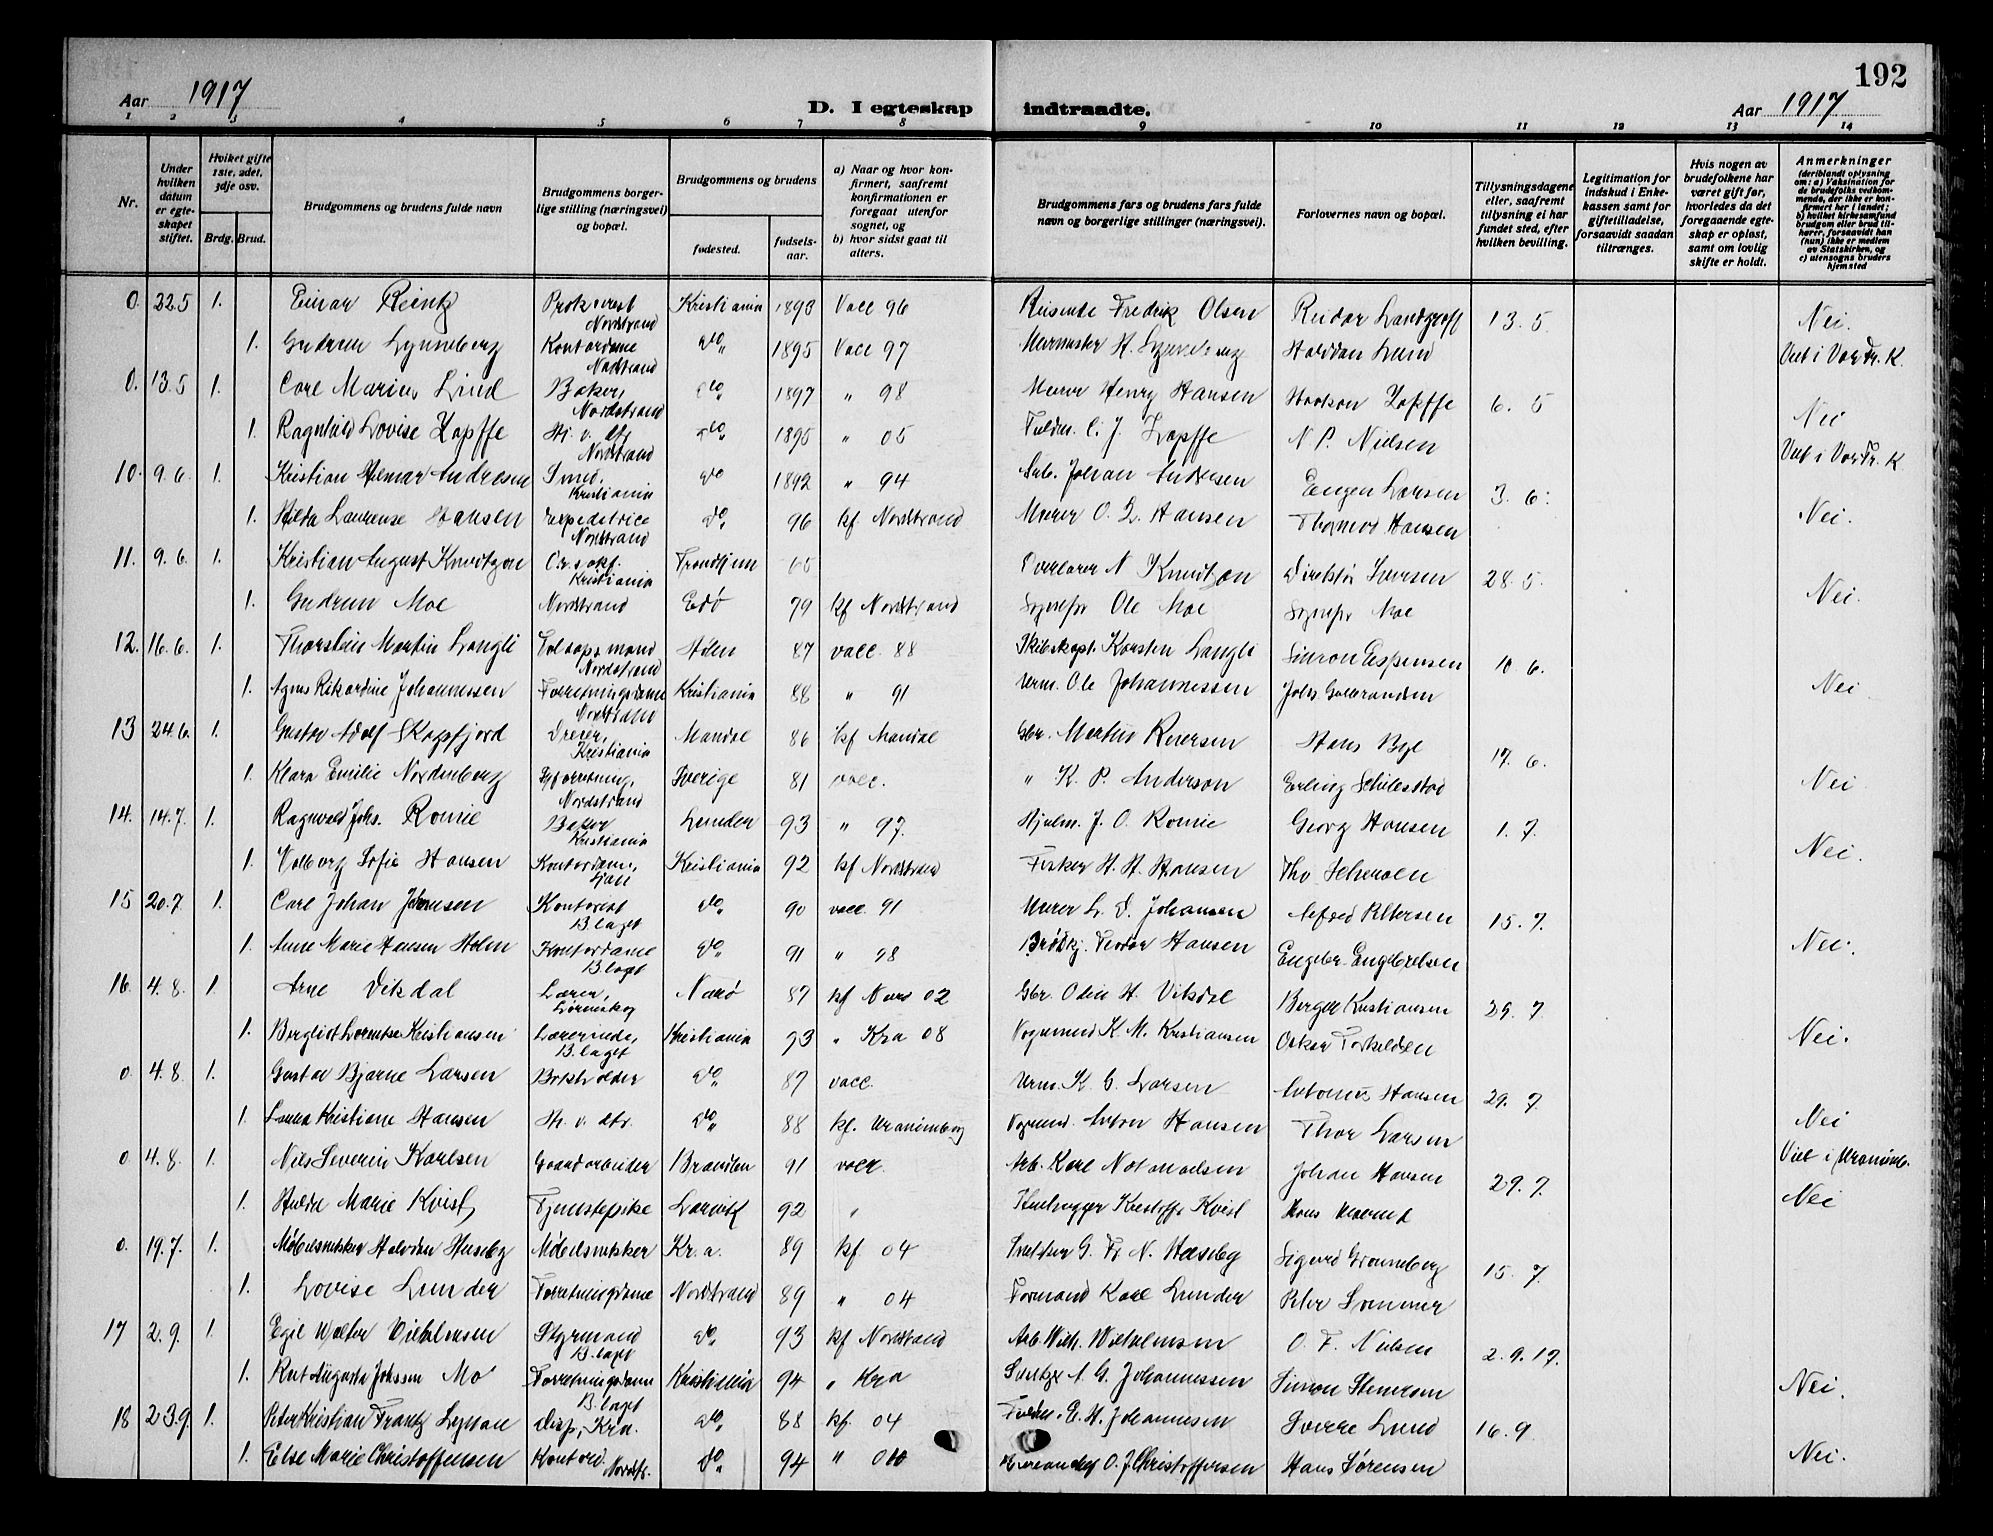 192
Aar 1917
D. I egteskap indtraadte.
Aar 1917
1 2 3 4 5 6 7 8 9 10 11 12 13 14
Nr.
Under hvilken datum er egteskapet stiftet.
Hvilket gifte 1ste, 2det, 3dje osv.
Brdg. Brud.
Brudgommens og brudens fulde navn
Brudgommens borgerlige stilling (næringsvei) og bopæl.
Brudgommens og brudens
fødested.
fødselsaar.
a) Naar og hvor konfirmert, saafremt konfirmationen er foregaat utenfor sognet, og
b) hvor sidst gaat til alters.
Brudgommens fars og brudens fars fulde navn og borgerlige stillinger (næringsvei).
Forlovernes navn og bopæl.
Tillysningsdagene eller, saafremt tillysning ei har fundet sted, efter hvilken bevilling.
Legitimation for indskud i Enkekassen samt for giftetilladelse, forsaavidt saadan tiltrænges.
Hvis nogen av brudefolkene har været gift før, hvorledes da det foregaaende egteskap er opløst, samt om lovlig skifte er holdt.
Anmerkninger (deriblandt oplysning om: a) Vaksination for de brudefolks vedkommende, der ikke er konfirmert her i landet; b) hvilket kirkesamfund brudgom eller brud tilhører, forsaavidt han (hun) ikke er medlem av Statskirken, og c) utensogns bruders hjemsted
0. 22.5 1. Einar Reintz Nordstrand Kristiania 1893 Vacc 96 Reisende Fredrik Olsen Reidar Landgraff 13. 5. Nei.
1. Gudrun Lynneberg Kontordame Nordstrand do 1895 Vacc 97 Halvdan Lund Viet i Vor Fr. K.
0. 13.5 1. Carl Marius Lind Baker, Nordstrand do 1897 " 98 Murer Henry Hansen Haakon Zapffe 6. 5 Nei
1. Ragnhild Lovise Zapffe Nordstrand do 1895 " 05 C. J. Zapffe N. P. Nielsen Viet i Vor Fr. K
10. 9.6 1. Kristian Hilmar Andresen Smed, Kristiania do 1892 " 94 Arb. Johan Andresen Eugen Larsen 3. 6. Nei.
1. Hilda Laurense Hansen Expeditrice Nordstrand do 96 kf Nordstrand Murer O. L. Hansen Thomas Hansen
11. 9.6. 1. Kristian August Knudtzon Kristiania Trondhjem 65 Overlærer N Knudtzon Direktør Iversen 28. 5. Nei.
1. Gudrun Moe Nordstrand Edø 79 kf Nordstrand Sognepr Ole Moe Sognepr Moe
12. 16.6. 1. Thorstein Martin Langli Nordstrand 87 vacc. 88 Skibskapt. Karsten Langli Simon Espensen 10 6. Nei
1. Agnes Rikardine Johannessen Forretningsdame Nordstrand Kristiania 88 " 91 Urm. Ole Johannessen
13 24.6. 1. Gustav Adolf Skogsfjord Dreier, Kristiania Mandal 86 kf Mandal Gbr. Hans Bye 17. 6. Nei
1. Klara Emilie Nordenberg Nordstrand Sverige 81 vacc. " K. P. Anderson Erling
14. 14.7. 1. Ragnvald Johs. Romie Baker Kristiania 93 " 97. Hjulm. J. O. Romie Georg Hansen 1. 7. Nei.
1. Valborg Sofie Hansen Kontordame, Ljan Kristiania 92 kf Nordstrand Fisker H. H. Hansen
15 20.7 1. Carl Johan Johansen Kontorist B.laget do 90 vacc. 91 Murer L. D. Johansen Alfred Pettersen 15. 7. Nei.
1. Anne Marie Hansen Holm Kontordame B.laget do 91 " 98 Teodor Hansen Engebr. Engebretsen
16. 4.8. 1. Arne Vitsdal Lærer, Lørenskog Narø 87 kf Narø 02 Gbr. Odin H. Vitsdal Berger Kristiansen 29. 7. Nei.
1. Bergliot Lorentse Kristiansen Lærerinde, B.laget Kristiania 93 " Kra 08 Vognmand K. M. Kristiansen Oskar Torkildsen
0. 4.8. 1. Gustav Bjarne Larsen Bokholder do 87 vacc. Urm. K. G. Larsen Antonius Hansen 29. 7. Nei
1. Laura Kristiane Hansen do 88 kf. Uranienborg Vognmd. Anton Hansen Thor Larsen Viet i Uranienb.
0. 4.8. 1. Nils Severin Karlsen Gaardarbeider 91 vacc. Arb. Karl Johan Hansen 29. 7. Nei
1. Hulda Marie Kvist Tjenestepike Larvik 92 " Stenhugger Kristoffer Kvist
0. 19.7. 1. Møbelsnekker Halvdan Huseby Møbelsnekker Kr.a. 89 kf. 04 Snekker G. Fr. N. Huseby Sigurd Grønneberg 15. 7.
1. Lovise Lunder Forretningsdame Nordstrand 89 " 04 Formand Karl Lunder Peter Sommer
17 2.9. 1. Egil Walter Vilhelmsen Styrmand B.laget do 93 kf Nordstrand Arb. Wilh. Wilhelmsen O. F. Nielsen 2.9.17. Nei.
1. Rut Augusta Johnsen Mo Forretningsdame B.laget Kristiania 94 " Kra A. G. Johannessen Simon Stenersen
18 23.9. 1. Peter Kristian Frantz Lyman Disp, Kra. do 88 kf. 04 E. H. Johannesen Sverre Lund 16.9. Nei.
1. Else Marie Christoffersen Kontord. Nordstr. do 94 " O. J. Christoffersen Hans Sørensen